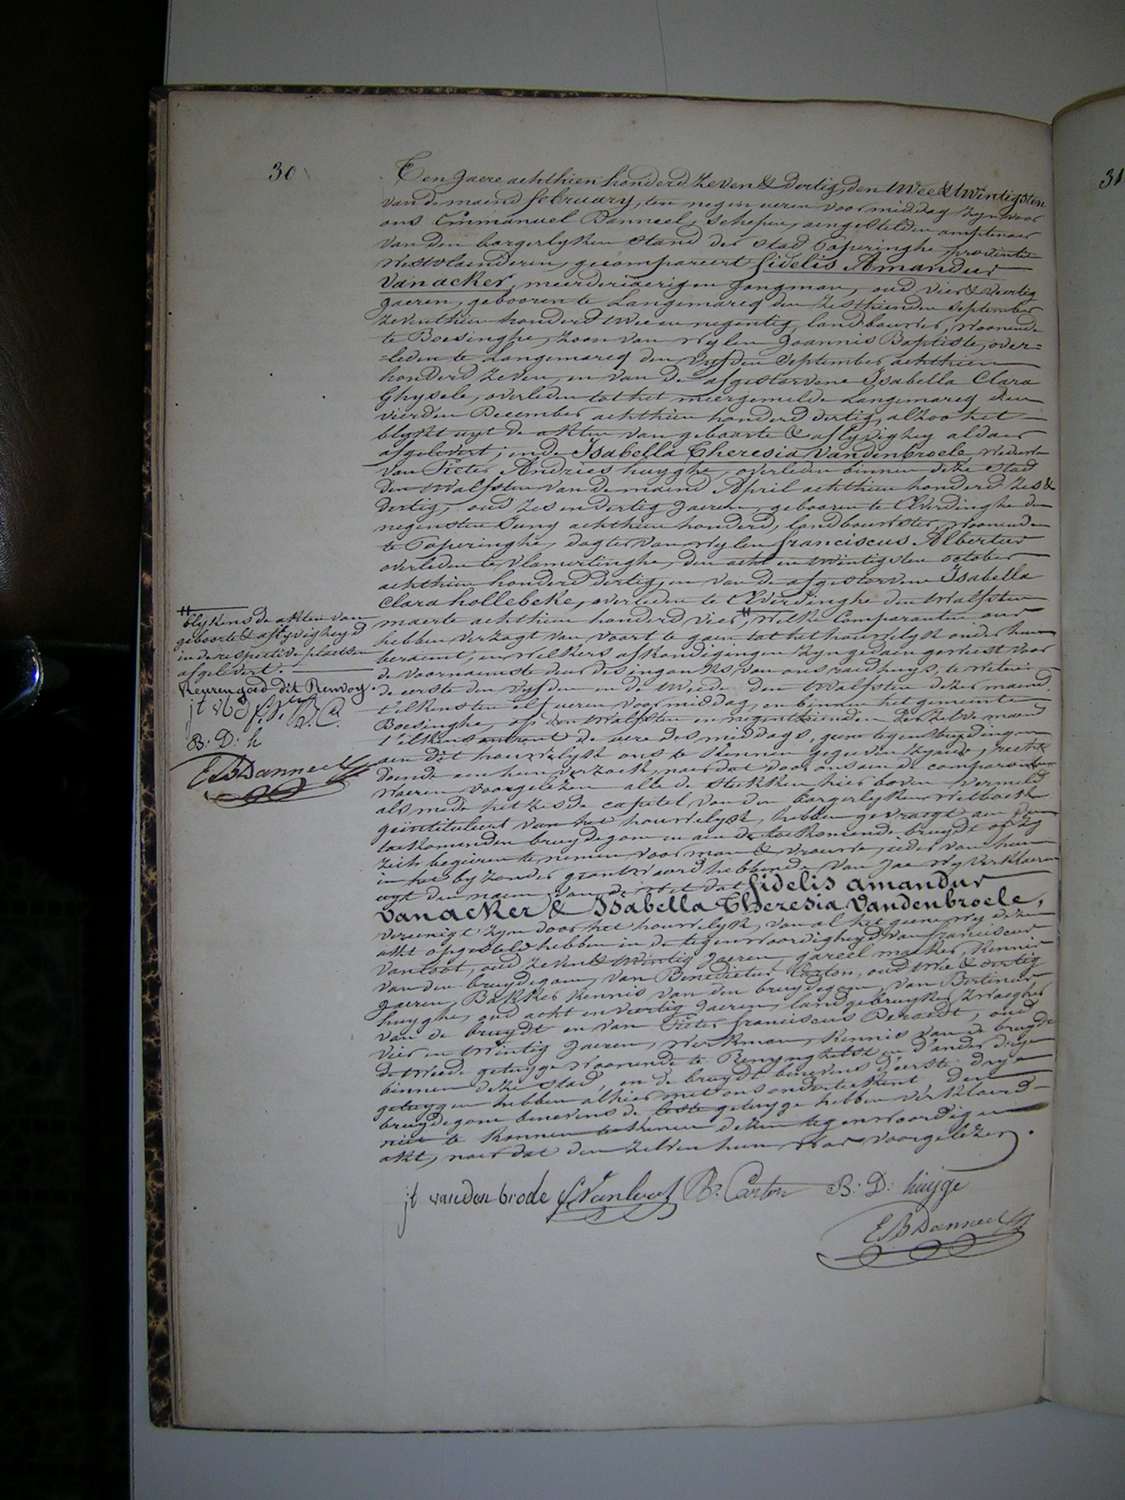 30
31
Ten jaere achthien honderd zeven & dertig, den twee & twintigsten
van de maend february, ten negen ueren voormiddag zyn voor
ons Emmanuel Danneel, schepen, aengestelden amptenaer
van den borgerlyken stand der stad Poperinghe provintie
Westvlaenderen, gecompareert fidelis Amandus
Vanacker, meerderjaerigen jongman, oud vier & veertig
jaeren, gebooren te Langemarcq den zesthienden September
zeventhien honderd twee en negentig, landbouwer, woonende
te Boesinghe, zoon van wylen Joannis Baptiste, over=
=leden te Langemarcq den vyfden September achthien
honderd zeven, en van de afgestorvene Isabella Clara
Ghysele, overleden tot het meergemelde Langemarcq den
vierden December achthien honderd dertig, alzoo het
blykt uyt de akten van geboorte & aflyvighey aldaer
afgelevert; ende Isabella Theresia Vandenbroele, weduwe
van Pieter Andries huyghe, overleden binnen deze stad
den twalfsten van de maend April achthien honderd zes &
dertig, oud zes en dertig jaeren, gebooren te Elverdinghe den
negensten Juny achthien honderd, landbouwster, woonende
te Poperinghe, dogter van wylen franciscus Albertus
overleden te Vlamertinghe, den acht en twintigsten october
achthien honderd dertig, en van de afgestorvene Isabella
Clara hollebeke, overleden te Elverdinghe den twalfsten
maerte achthien honderd vier, # welke Comparanten ons
hebben verzogt van voort te gaen tot het houwelyk onder hun
beraemt, en welkers afkondigingen zyn gedaen geweest voor
de voornaemste deur des ingangs van ons raedhuys, te weten:
de eerste den vyfden en de tweede den twalfsten dezer maend
t'elkens ten elf ueren voormiddag, en binnen het gemeente
Boesinghe, op den twalfsten en negenthienden derzelve maend
t'elkens omtrent de uere des middags, geene tegenstrydingen
aen dit houwelyk ons te kennen gegeven zynde, recht
doende aen hun verzoek, naer dat door ons aen de comparanten
waeren voorgelezen alle de stukken hier boven vermeld
als mede het zesde capitel van den borgerlyken wetboek
geintituleert van het houwelyk, hebben gevraegt aen den
toekomenden bruydegom en aen de toekomende bruydt of zy
zich begeiren te nemen voor man & vrouwe, ieder van hun
in het byzonder geantwoord hebbende van Jae, wy verklaeren
uyt den naem van de wet dat fidelis amandus
Vanacker & Isabella Theresia Vandenbroele,
vereenigt zyn door het houwelyk, van al het geene wy dezen
akt opgesteld hebben in de tegenwoordigheyd van franciscus
Vanloot, oud zeven & twintig jaeren, gareel maeker, kennis
van den bruydegom, van Benedictus Carton, oud twee & dertig
jaeren, Bakker, kennis van den bruydegom, van Bertinus
huyghe, oud acht en veertig jaeren, landgebruyker, zwaegher
van de bruydt en van Pieter franciscus Deraedt, oud
vier en twintig jaeren, werkman, kennis van de bruydt
de tweede getuyge woonende te Renynghelst en d'ander dry
binnen deze stad, en de bruydt benevens d'eerste dry
getuygen hebben alhier met ons onderteekent, den
bruydegom benevens de leste getuyge hebben verklaerd
niet te konnen teekenen dezen tegenwoordigen
akt, naer dat den zelven hun was voorgelezen.
jt vanden brode f Vanloot B. Carton B: D: huyge
E B Danneel
# blykens de akten van
geboorte & aflyvigheyd
in de respective plaetsen
afgelevert
Keuren goed dit Renvoy.
jt vbd f.V. B.C.
B: D: h
E B Danneel